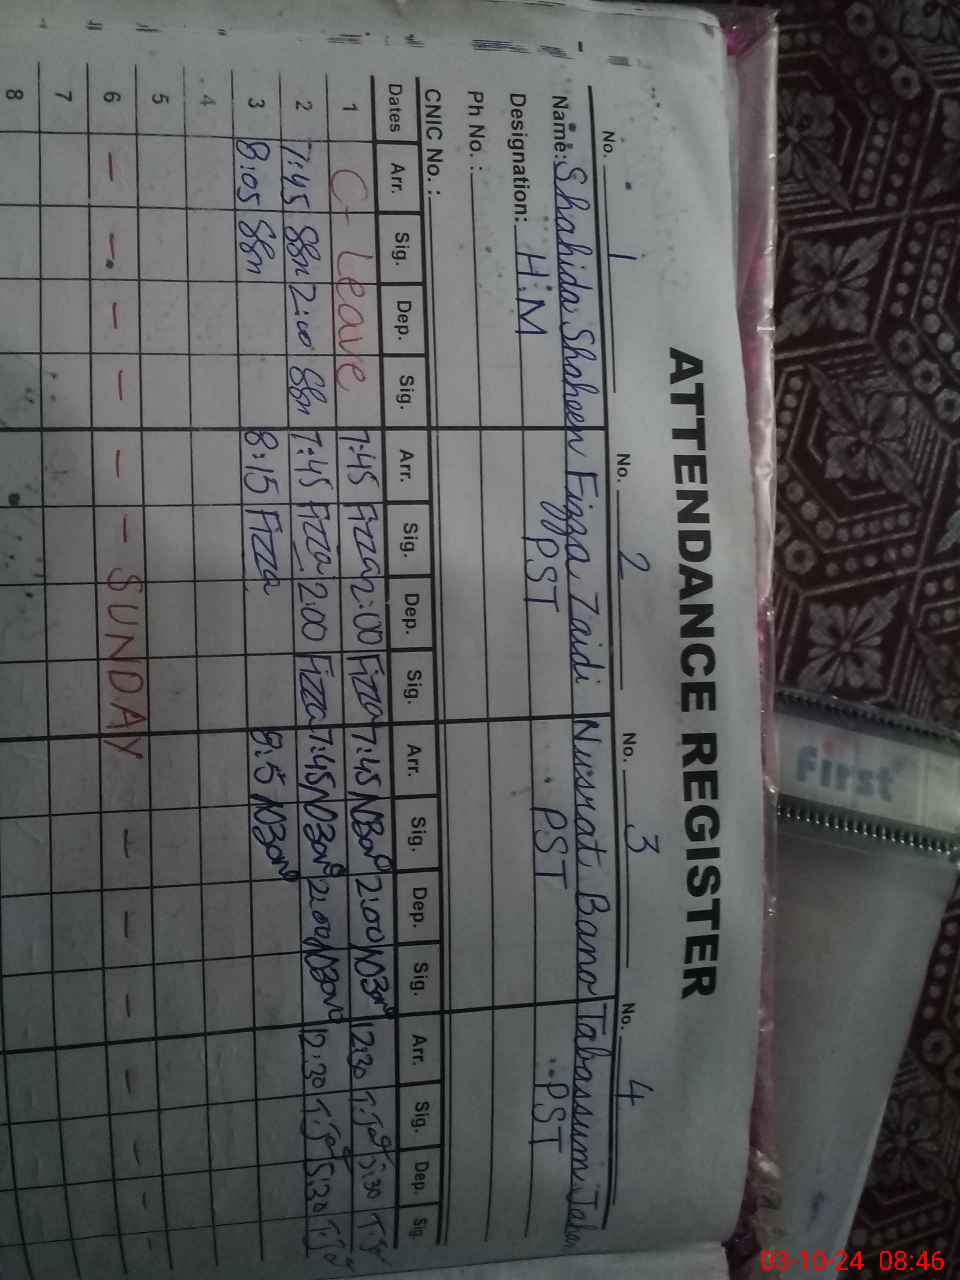 ATTENDANCE REGISTER
No. 1 No. 2 No. 3 No. 4
Name: Shahida Shaheen Fizza Zaidi Nusrat Bano Tabassum Jahan
Designation: H.M PST PST PST
Ph No. :
CNIC No. :
Dates Arr. Sig. Dep. Sig. Arr. Sig. Dep. Sig. Arr. Sig. Dep. Sig. Arr. Sig. Dep. Sig.
1 C- Leave 7:45 Fizza 2:00 Fizza 7:45 NBano 2:00 NBano 12:30 5:30
2 7:45 SSn 2:00 SSn 7:45 Fizza 2:00 Fizza 7:45 NBano 2:00 NBano 12:30 5:30
3 8:05 SSn 8:15 Fizza 8:5 NBano
4
5
6 - - - - - - SUNDAY - - - - - - -
7
8
First
03-10-24 08:46